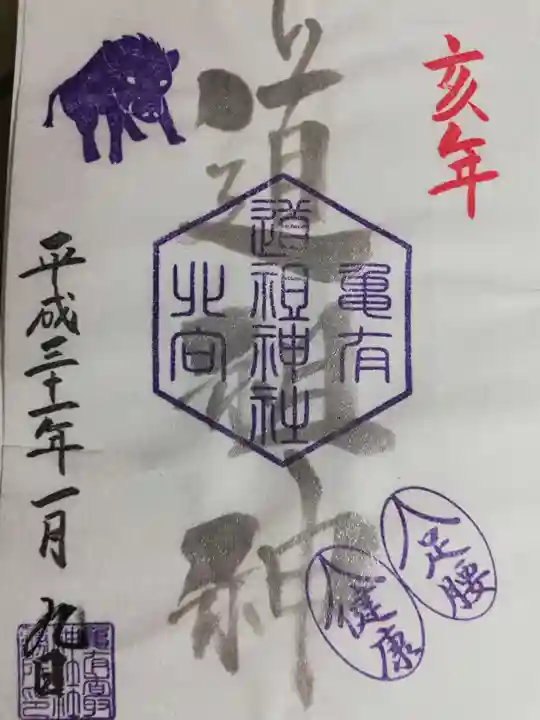 亥年
道祖神
亀有
道祖神社
北向
足腰
健康
平成三十一年一月九日